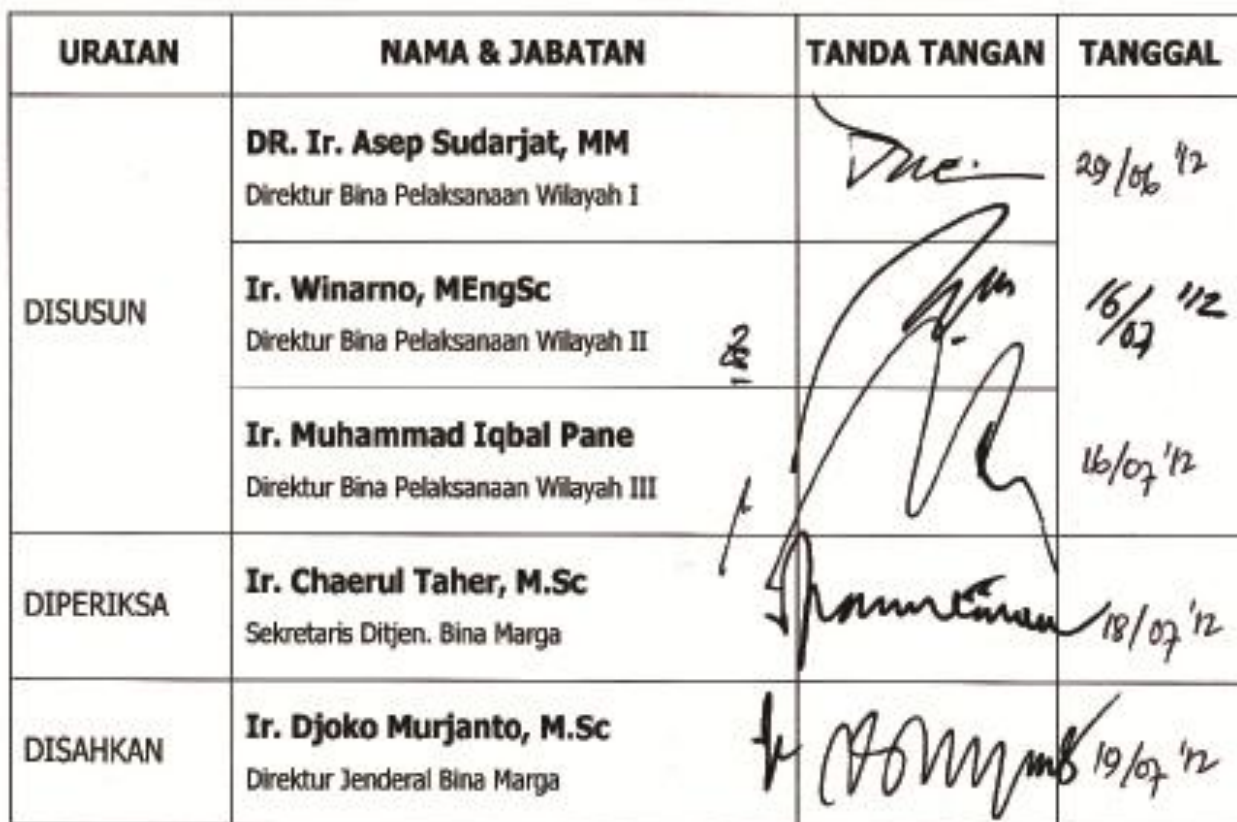 URAIAN NAMA & JABATAN TANDA TANGAN TANGGAL
DISUSUN
DR. Ir. Asep Sudarjat, MM
Direktur Bina Pelaksanaan Wilayah I
29/06 '12
Ir. Winarno, MEngSc
Direktur Bina Pelaksanaan Wilayah II
16/07 '12
Ir. Muhammad Iqbal Pane
Direktur Bina Pelaksanaan Wilayah III
16/07 '12
DIPERIKSA
Ir. Chaerul Taher, M.Sc
Sekretaris Ditjen. Bina Marga
18/07 '12
DISAHKAN
Ir. Djoko Murjanto, M.Sc
Direktur Jenderal Bina Marga
19/07 '12